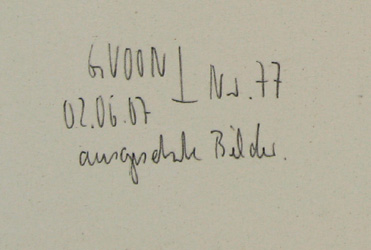 GVOON
Nr. 77
02.06.07
ausgesuchte Bilder.